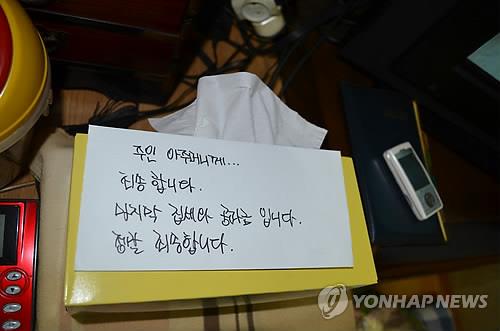 주인 아주머니께...
죄송합니다.
마지막 집세와 공과금 입니다.
정말 죄송합니다.
YONHAP NEWS